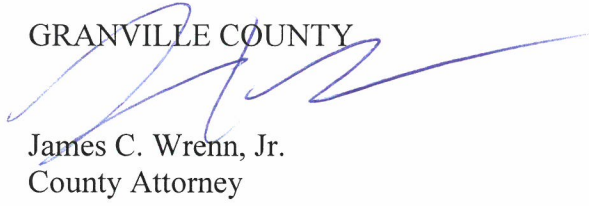 GRANVILLE COUNTY
James C. Wrenn, Jr.
County Attorney